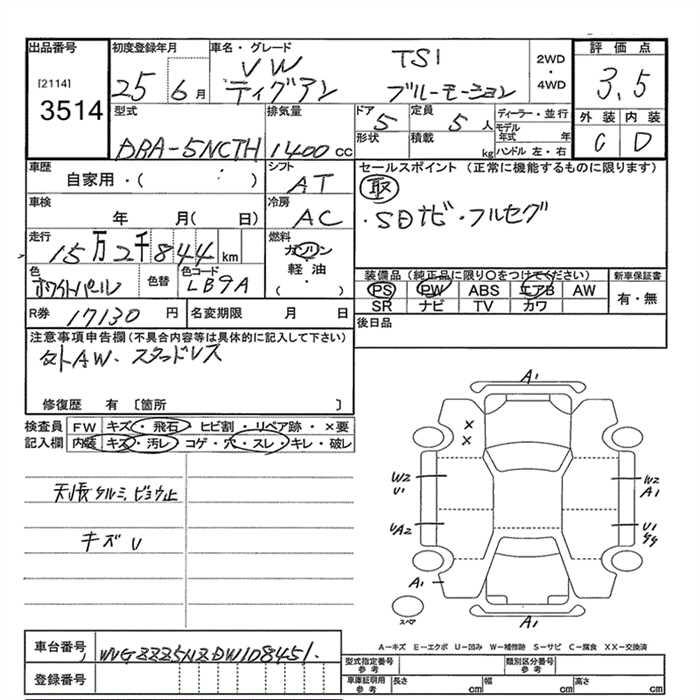 出品番号 初度登録年月 車名・グレード 評価点
[2114]
3514
25 6月
VW TSI
ティグアン ブルーモーション
2WD
・
4WD
3.5
外装 内装
C D
型式 排気量 ドア 定員 ディーラー・並行
DBA-5NCTH 1400cc 5 5人 モデル年式 年
形状 積載 kg ハンドル 左・右
車歴 シフト セールスポイント(正常に機能するものに限ります)
自家用・( ) AT 取
車検 冷房 ・SDナビ・フルセグ
年 月( 日) AC
走行 燃料
15万2千844km ガソリン
軽油
( ・ )
色 色替 色コード
ホワイトパール LB9A
装備品(純正品に限り○をつけてください) 新車保証書
PS PW ABS エアB AW 有・無
SR ナビ TV カワ
R券 17130円 名変期限 月 日 後日品
注意事項申告欄(不具合内容等は具体的に記入して下さい)
タトAW、スタッドレス
修復歴 有[箇所 ]
検査員 FW キズ・飛石・ヒビ割・リペア跡・×要
記入欄 内装 キズ・汚レ・コゲ・穴・スレ・キレ・破レ
天張ケルミ、ビョウ止
キズU
A1
×
×
W2 W2
U1 A1
UA2 U1
A1
スペア
A1
A-キズ E-エクボ U-凹み W-補修跡 S-サビ C-腐食 XX-交換済
車台番号 WVGZZZ5NZDW108451.
登録番号
型式指定番号 参考 類別区分番号 参考
車庫証明用 参考 長さ cm 幅 cm 高さ cm